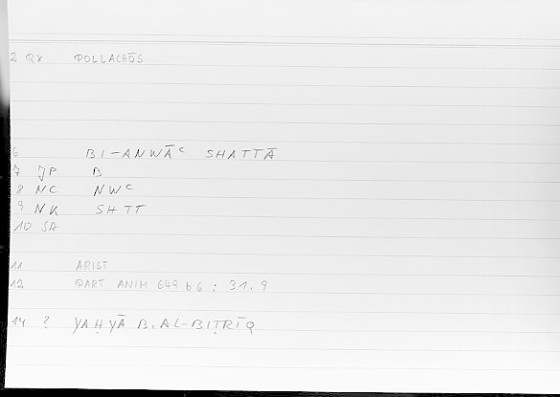 2 QY POLLACHŌS
6 BI-ANWĀʿ SHATTĀ
7 JP B
8 NC NWʿ
9 NK SHTT
10 SA
11 ARIST
12 PART ANIM 649 b6 : 31.9
14 ? YAḤYĀ B. AL-BIṬRĪQ